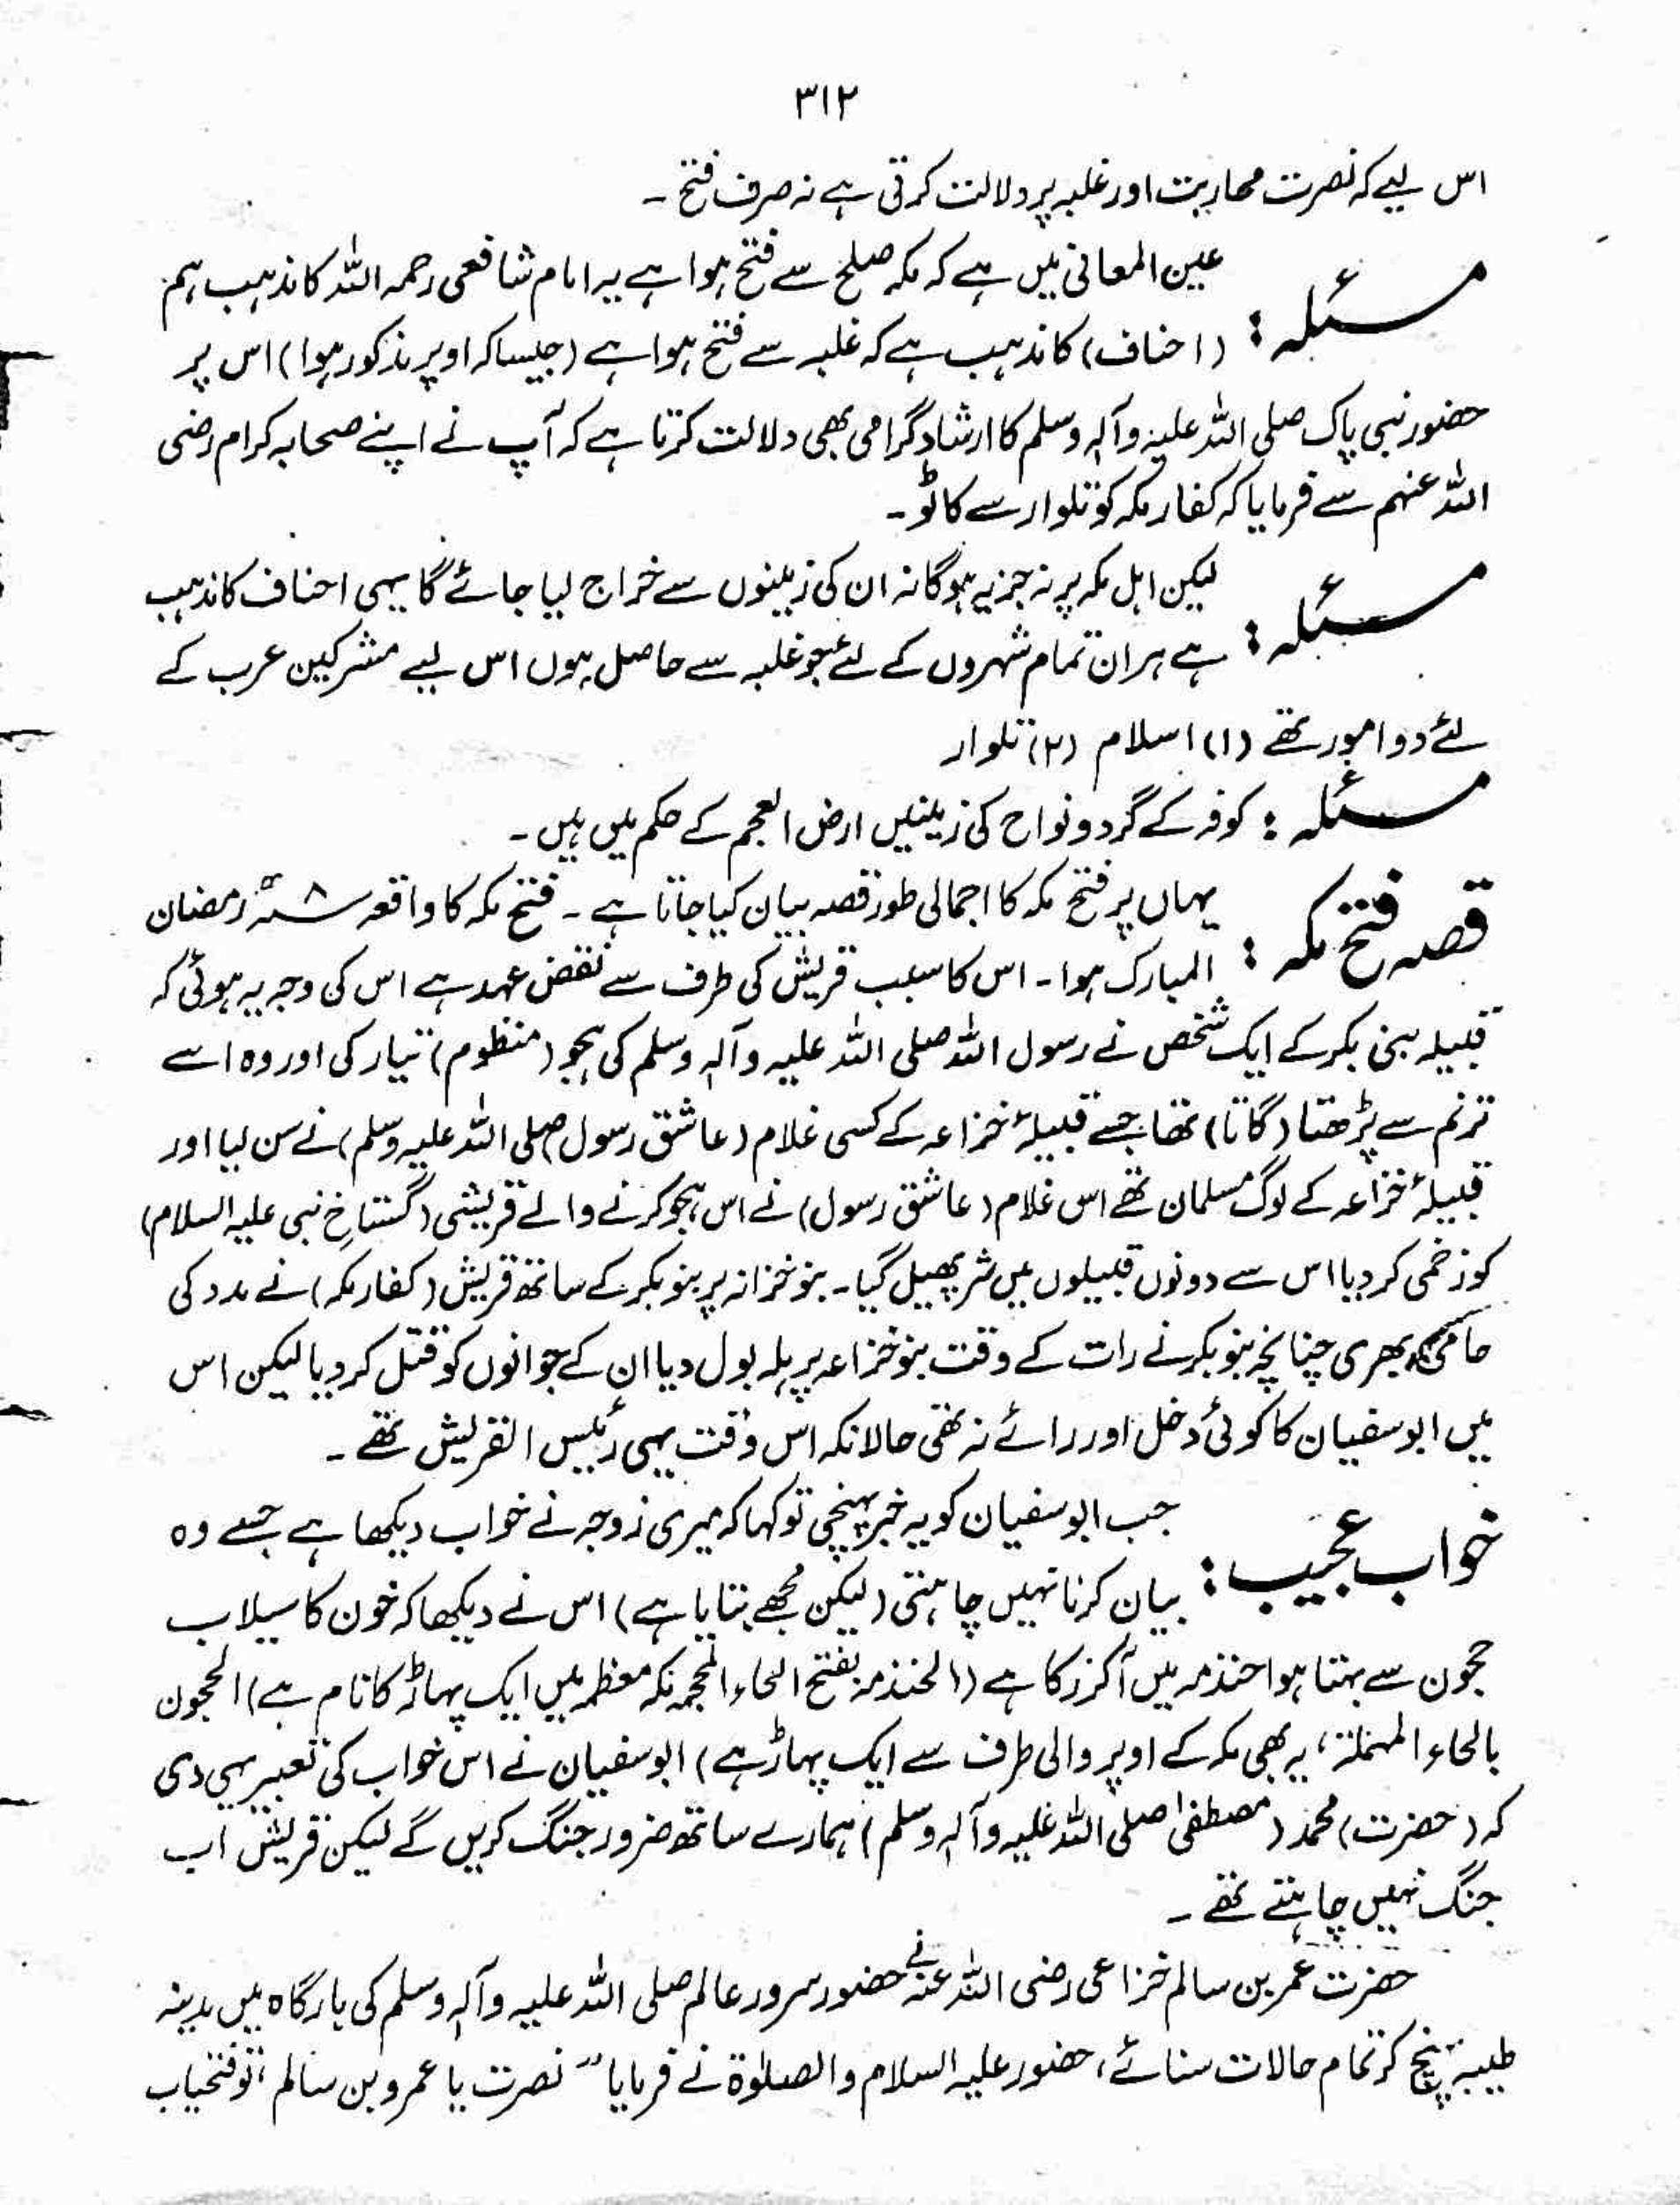 ۳۱۲
اس لیے کہ نصرت محاربت اور غلبہ پر دلالت کرتی ہے نہ صرف فتح ۔
مسئلہ : عین المعانی میں ہے کہ مکہ صلح سے فتح ہوا ہے یہ امام شافعی رحمہ اللہ کا مذہب ہم
(احناف) کا مذہب ہے کہ غلبہ سے فتح ہوا ہے (جیسا کہ اوپر مذکور ہوا) اس پر
حضور نبی پاک صلی اللہ علیہ وآلہ وسلم کا ارشادِ گرامی بھی دلالت کرتا ہے کہ آپ نے اپنے صحابہ کرام رضی
اللہ عنہم سے فرمایا کہ کفار مکہ کو تلوار سے کاٹو ۔
مسئلہ : لیکن اہل مکہ پر نہ جزیہ ہوگا نہ ان کی زمینوں سے خراج لیا جائے گا یہی احناف کا مذہب
ہے ہر ان تمام شہروں کے لئے جو غلبہ سے حاصل ہوں اس لیے مشرکین عرب کے
لئے دو امور تھے (۱) اسلام (۲) تلوار
مسئلہ : کوفہ کے گرد و نواح کی زمینیں ارض العجم کے حکم میں ہیں ۔
قصہ فتح مکہ : یہاں پر فتح مکہ کا اجمالی طور قصہ بیان کیا جاتا ہے ۔ فتح مکہ کا واقعہ ۸ھ رمضان
المبارک ہوا ۔ اس کا سبب قریش کی طرف سے نقض عہد ہے اس کی وجہ یہ ہوئی کہ
قبیلہ بنی بکر کے ایک شخص نے رسول اللہ صلی اللہ علیہ وآلہ وسلم کی ہجو (منظوم) تیار کی اور وہ اسے
ترنم سے پڑھتا (گاتا) تھا جسے قبیلۂ خزاعہ کے کسی غلام (عاشق رسول صلی اللہ علیہ وسلم) نے سن لیا اور
قبیلۂ خزاعہ کے لوگ مسلمان تھے اس غلام (عاشق رسول) نے اس ہجو کرنے والے قریشی (گستاخِ نبی علیہ السلام)
کو زخمی کر دیا اس سے دونوں قبیلوں میں شر پھیل گیا ۔ بنو خزانہ پر بنو بکر کے ساتھ قریش (کفار مکہ) نے مدد کی
حامی بھری چنانچہ بنو بکر نے رات کے وقت بنو خزاعہ پر ہلہ بول دیا ان کے جوانوں کو قتل کر دیا لیکن اس
میں ابوسفیان کا کوئی دخل اور رائے نہ تھی حالانکہ اس وقت یہی رئیس القریش تھے ۔
خواب عجیب : جب ابوسفیان کو یہ خبر پہنچی تو کہا کہ میری زوجہ نے خواب دیکھا ہے جسے وہ
بیان کرنا نہیں چاہتی (لیکن مجھے بتایا ہے) اس نے دیکھا کہ خون کا سیلاب
حجون سے بہتا ہوا خندمہ میں آکر رکا ہے (الخندمہ بفتح الخاء المعجمہ مکہ معظمہ میں ایک پہاڑ کا نام ہے) الحجون
بالحاء المہملۃ، یہ بھی مکہ کے اوپر والی طرف سے ایک پہاڑ ہے) ابوسفیان نے اس خواب کی تعبیر یہی دی
کہ (حضرت) محمد (مصطفیٰ صلی اللہ علیہ وآلہ وسلم) ہمارے ساتھ ضرور جنگ کریں گے لیکن قریش اب
جنگ نہیں چاہتے تھے ۔
حضرت عمر بن سالم خزاعی رضی اللہ عنہ نے حضور سرور عالم صلی اللہ علیہ وآلہ وسلم کی بارگاہ میں مدینہ
طیبہ پہنچ کر تمام حالات سنائے، حضور علیہ السلام والصلوٰۃ نے فرمایا " نصرت یا عمرو بن سالم ، تو فتحیاب